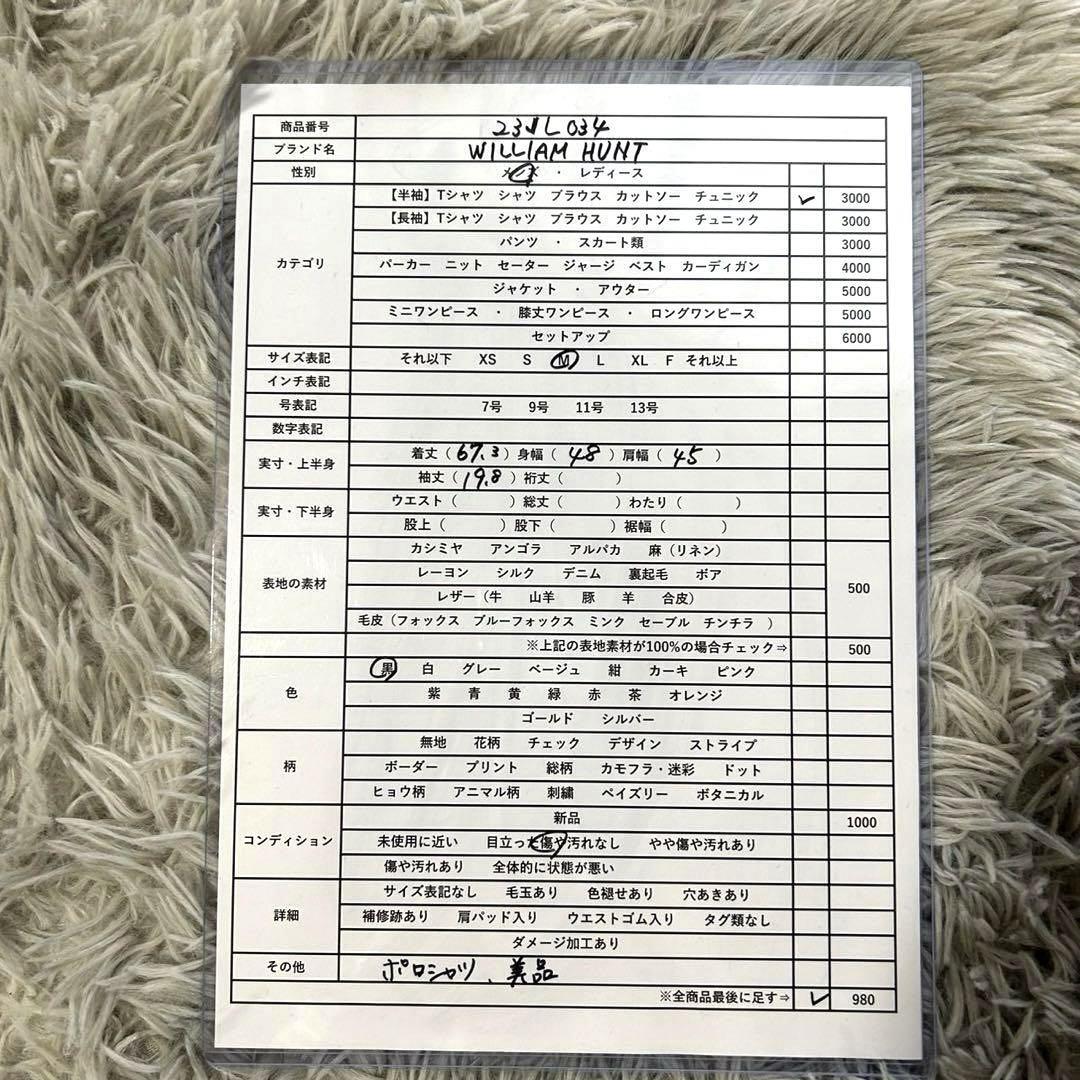 商品番号 23JL034
ブランド名 WILLIAM HUNT
性別 メンズ ・ レディース
カテゴリ
【半袖】Tシャツ シャツ ブラウス カットソー チュニック ✓ 3000
【長袖】Tシャツ シャツ ブラウス カットソー チュニック 3000
パンツ ・ スカート類 3000
パーカー ニット セーター ジャージ ベスト カーディガン 4000
ジャケット ・ アウター 5000
ミニワンピース ・ 膝丈ワンピース ・ ロングワンピース 5000
セットアップ 6000
サイズ表記 それ以下 XS S M L XL F それ以上
インチ表記
号表記 7号 9号 11号 13号
数字表記
実寸・上半身
着丈（67.3）身幅（48）肩幅（45）
袖丈（19.8）裄丈（ ）
実寸・下半身
ウエスト（ ）総丈（ ）わたり（ ）
股上（ ）股下（ ）裾幅（ ）
表地の素材
カシミヤ アンゴラ アルパカ 麻（リネン）
レーヨン シルク デニム 裏起毛 ボア
500
レザー（牛 山羊 豚 羊 合皮）
毛皮（フォックス ブルーフォックス ミンク セーブル チンチラ ）
※上記の表地素材が100%の場合チェック⇒ 500
色
黒 白 グレー ベージュ 紺 カーキ ピンク
紫 青 黄 緑 赤 茶 オレンジ
ゴールド シルバー
柄
無地 花柄 チェック デザイン ストライプ
ボーダー プリント 総柄 カモフラ・迷彩 ドット
ヒョウ柄 アニマル柄 刺繍 ペイズリー ボタニカル
コンディション
新品 1000
未使用に近い 目立った傷や汚れなし やや傷や汚れあり
傷や汚れあり 全体的に状態が悪い
詳細
サイズ表記なし 毛玉あり 色褪せあり 穴あきあり
補修跡あり 肩パッド入り ウエストゴム入り タグ類なし
ダメージ加工あり
その他 ポロシャツ、美品
※全商品最後に足す⇒ ✓ 980